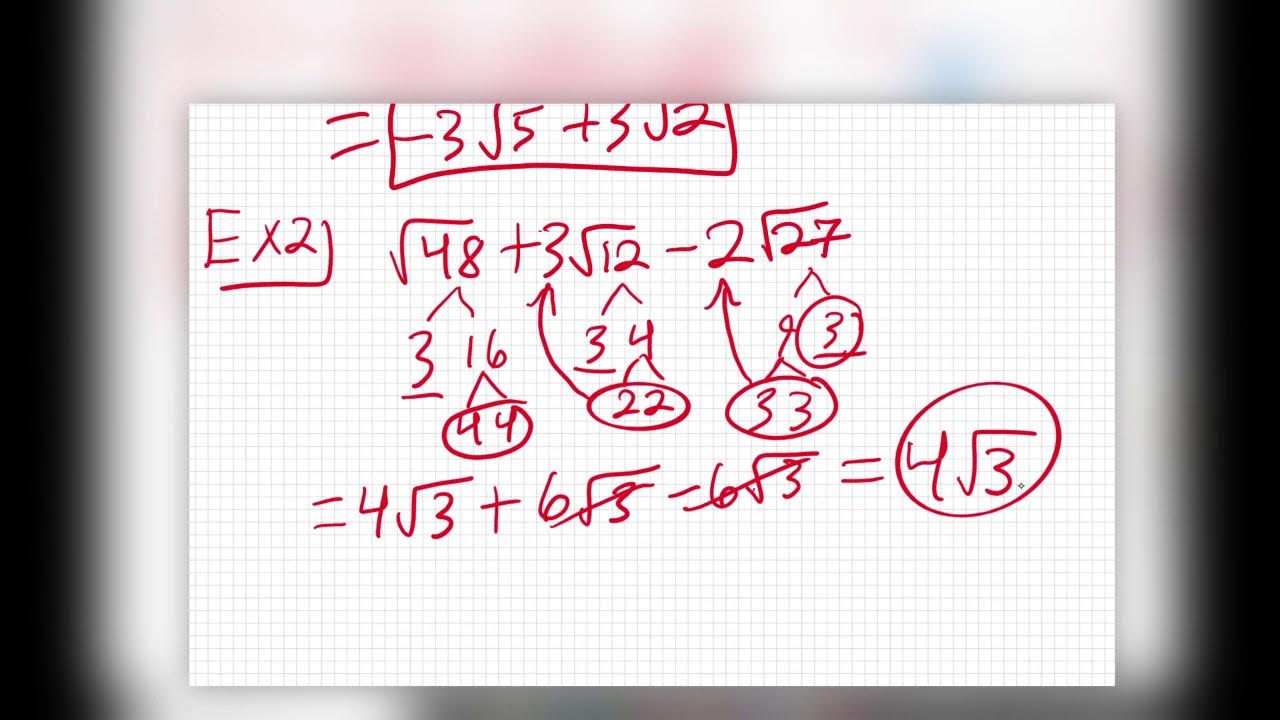 = -3√5 + 3√2
Ex2) √48 + 3√12 - 2√27
3 16 3 4 9 3
44 22 33
= 4√3 + 6√3 - 6√3 = 4√3